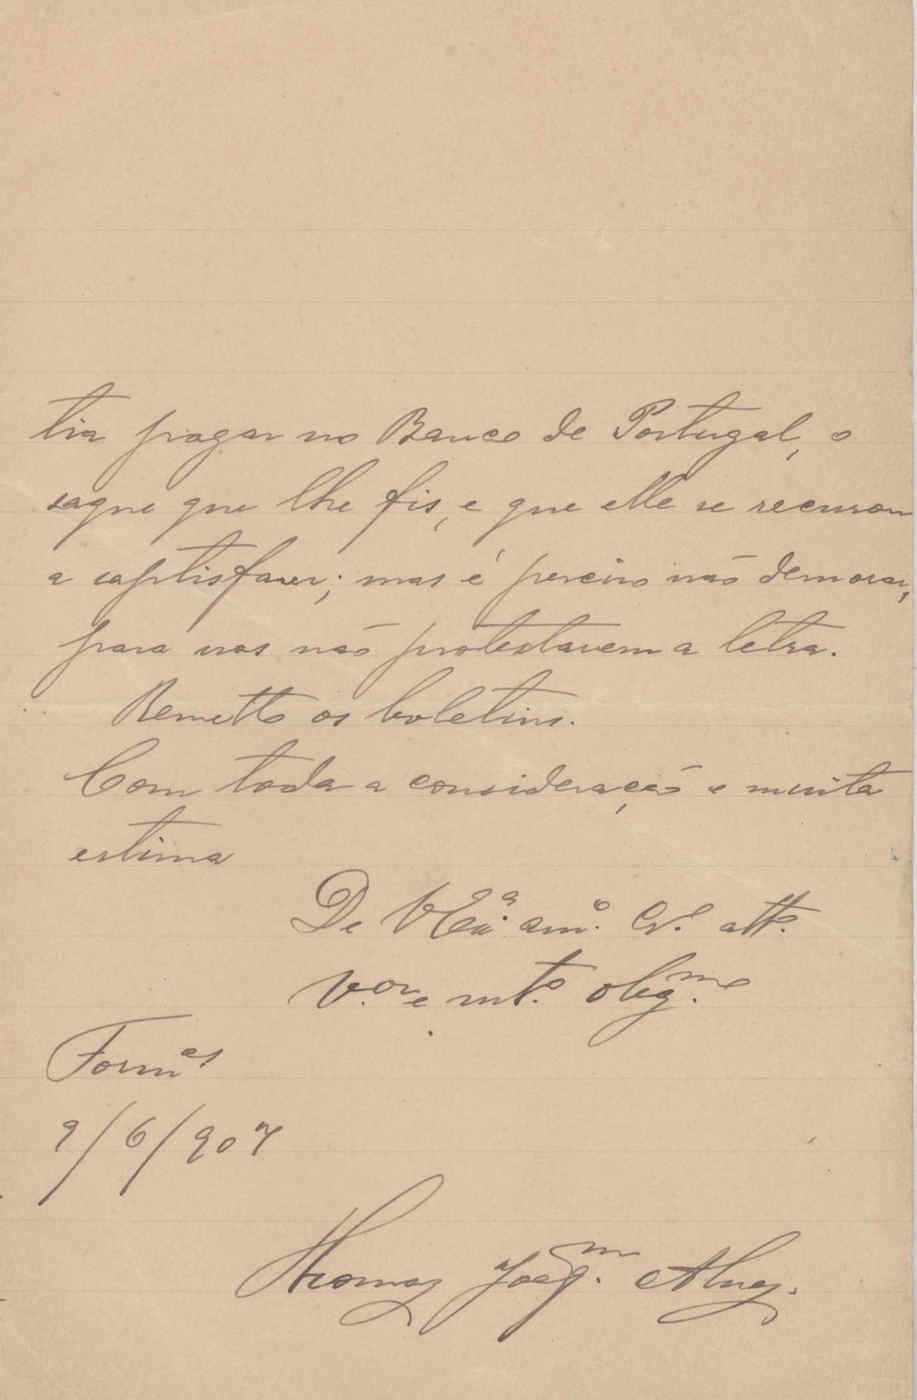 tra pagar no Banco de Portugal, o
saque que lhe fis, e que elle se recusou
a saptisfazer; mas é perciso não demorar,
para nos não protestarem a letra.
Remetto os boletins.
Com toda a consideração e muita
estima
De V Exª. amº. Cr.º attº.
V.or e mt.º obgmº
Fornos
9/6/907
Thomaz Joaqm. Alvez.